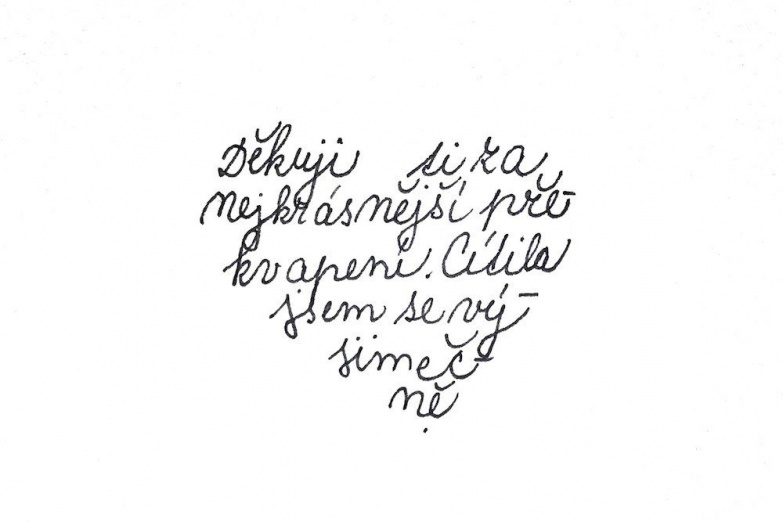 Děkuji ti za
nejkrásnější pře-
kvapení. Cítila
jsem se vý-
jimeč-
ně
.